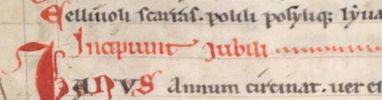 Sellinoli scarias. polili polyliq; lyna
Incipiunt iubili
IANVS annum circinat. uer e